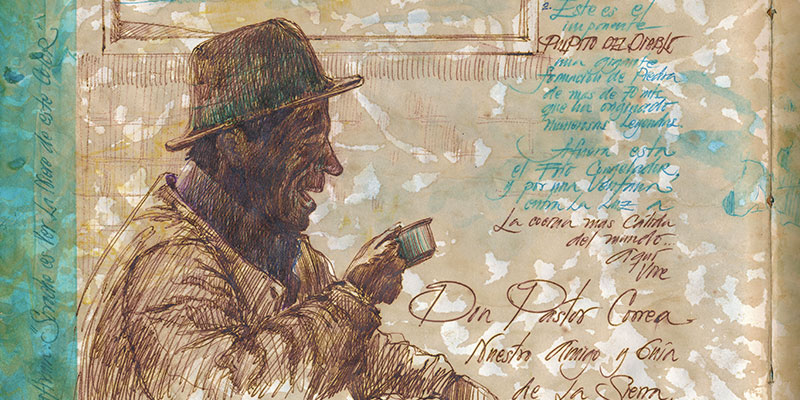 2. Este es el
imponente
PULPITO DEL DIABLO
una gigante
formación de Piedra
de mas de 70 mts.
que ha originado
numerosas Leyendas.
Afuera esta
el Frio Congelador,
y por una Ventana
entra La Luz a
La cocina mas Calida
del mundo...
aquí
Vive
Don Pastor Correa
Nuestro Amigo y Guía
de La Sierra.
es por La Nieve de este color